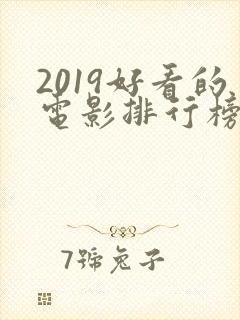 2019好看的
電影排行榜
7號兔子